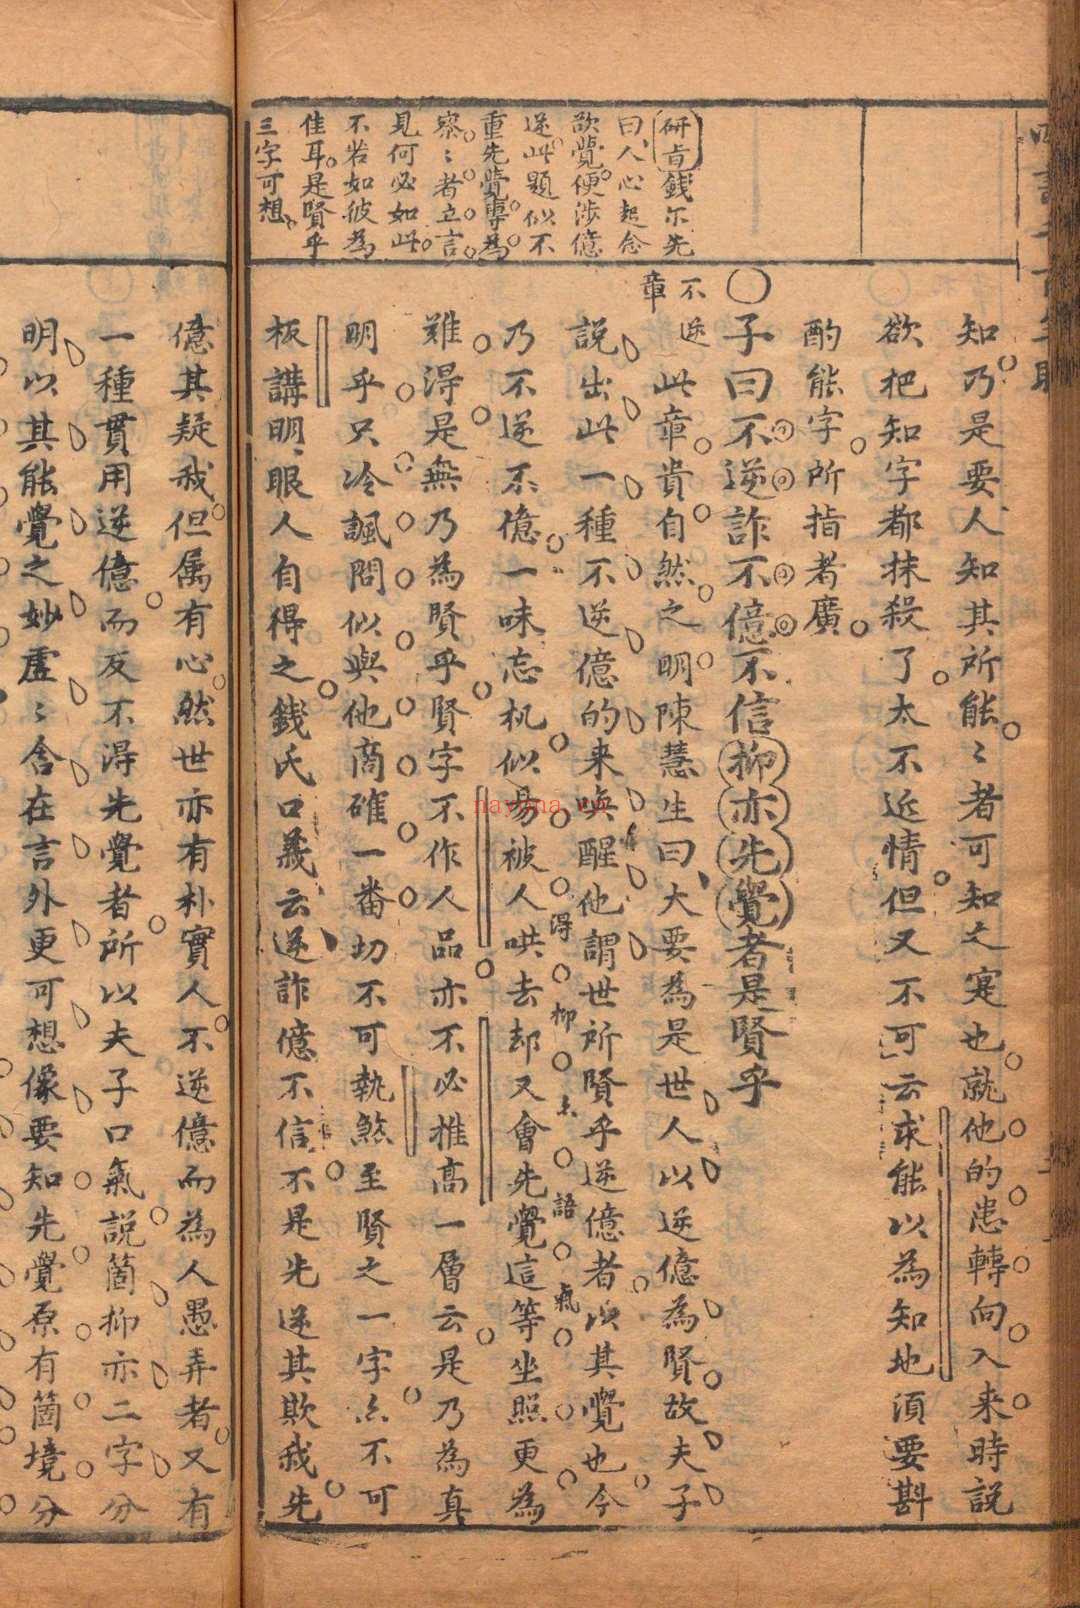 研旨錢尔先
曰人心起念
欲覺便涉億
逆此題似不
重先覺專為
察〻者立言
見何必如此
不若如彼為
佳耳是賢乎
三字可想
知乃是要人知其所能〻者可知之寔也就他的患轉向入来時説
欲把知字都抹殺了太不近情但又不可云求能以為知地須要斟
酌能字所指者廣
不逆
章
〇子曰不逆詐不億不信抑亦先覺者是賢乎
此章貴自然之明陳慧生曰大要為是世人以逆億為賢故夫子
説出此一種不逆億的来唤醒他謂世所賢乎逆億者以其覺也今
得抑亦語氣
乃不逆不億一味忘机似易被人哄去却又會先覺這等坐照更為
難淂是無乃為賢乎賢字不作人品亦不必推高一層云是乃為真
明乎只冷諷問似與他商確一番切不可執煞至賢之一字亦不可
板講明眼人自得之錢氏口義云逆詐億不信不是先逆其欺我先
億其疑我但属有心然世亦有朴實人不逆億而為人愚弄者又有
一種貫用逆億而反不淂先覺者所以夫子口氣説箇抑亦二字分
明以其能覺之妙虚〻含在言外更可想像要知先覺原有箇境分
nayona.cn